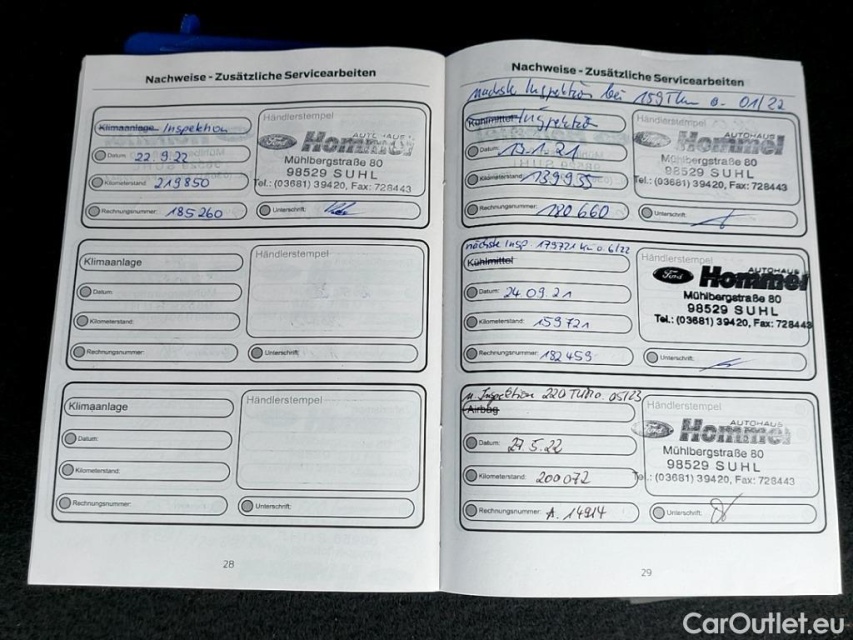 Nachweise - Zusätzliche Servicearbeiten
Klimaanlage Inspektion
Händlerstempel
Ford AUTOHAUS Hommel
Mühlbergstraße 80
98529 SUHL
Tel.: (03681) 39420, Fax: 728443
Datum: 22.9.22
Kilometerstand: 219850
Rechnungsnummer: 185260
Unterschrift:
Klimaanlage
Händlerstempel
Datum:
Kilometerstand:
Rechnungsnummer:
Unterschrift:
Klimaanlage
Händlerstempel
Datum:
Kilometerstand:
Rechnungsnummer:
Unterschrift:
28
Nachweise - Zusätzliche Servicearbeiten
nächste Inspektion bei 159Tkm o. 01/22
Kühlmittel Inspektion
Händlerstempel
Ford AUTOHAUS Hommel
Mühlbergstraße 80
98529 SUHL
Tel.: (03681) 39420, Fax: 728443
Datum: 13.1.21
Kilometerstand: 139935
Rechnungsnummer: 180660
Unterschrift:
nächste Insp 179721 km o. 6/22
Kühlmittel
Händlerstempel
Ford AUTOHAUS Hommel
Mühlbergstraße 80
98529 SUHL
Tel.: (03681) 39420, Fax: 728443
Datum: 24.09.21
Kilometerstand: 159721
Rechnungsnummer: 182459
Unterschrift:
Inspektion 220 o. 05/23
Airbag
Händlerstempel
Ford AUTOHAUS Hommel
Mühlbergstraße 80
98529 SUHL
Tel.: (03681) 39420, Fax: 728443
Datum: 27.5.22
Kilometerstand: 200072
Rechnungsnummer: A. 14914
Unterschrift:
29
CarOutlet.eu